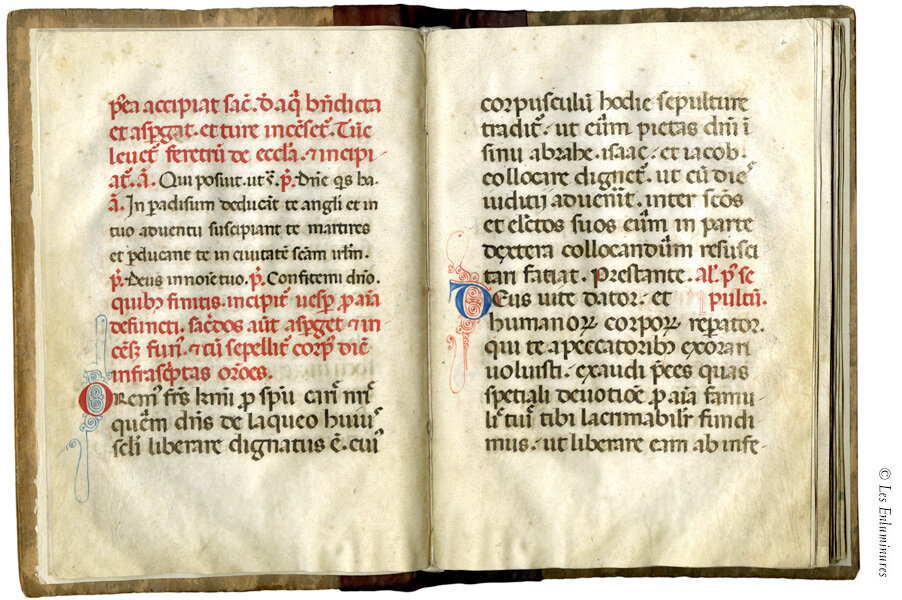 p̄ea accipiat sac̄. d̄ aq̄ bn̄dicta
et asp̄gat. et ture incēset. Tūc
leuet᷑ feretrū de eccl̄a. ⁊ incipi
at᷑. a᷑. Qui posuit. ut s᷑. p᷑. Dn̄e qs ha⸗
a᷑. In padisum deducāt te angli et in
tuo aduentu suscipiant te martires
et pducant te in ciuitatē scām irlm̄.
p᷑. Deus in noīe tuo. p᷑. Confitemi dn̄o.
quibꝫ finitis. incipit᷑ uesp᷑. p aīa
defuncti. sac̄dos aūt asp̄get ⁊ in⸗
cēs₃ fun᷑. ⁊ tū sepellit᷑ corp᷒ dic̄
infrasc̄ptas oroēs.
Orem᷒ frs̄ kmī p sp̄u cari nr̄i
quem dn̄s de laqueo huiu᷒
scl̄i liberare dignatus ē. cui᷒
corpusculū hodie sepulture
tradit᷑. ut eum pietas dn̄i ī
sinu abrahe. isaac. et iacob.
collocare dignet᷑. ut cū die᷒
iuditij aduen̄it. inter scōs
et electos suos eum in parte
dextera collocandum resusci
tari fatiat. Prestante. al᷑. p᷒ se
Deus uite dator. et pultū.
humanoꝝ corpoꝝ repator.
qui te a peccatoribꝫ exorari
uoluisti. exaudi p̄ces quas
spetiali deuotiōe p aīa famu⸗
li tui᷒ tibi lacrimabilr̄ fundi
mus. ut liberare eam ab infe⸗
© Les Enluminures